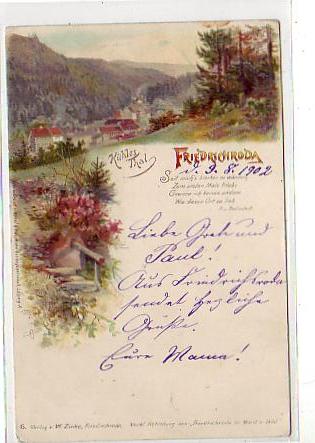 Kühles
Thal.
FRIEDRICHRODA
d. 9. 8. 1902
Seit mich's hierher
Zum ersten Male
Gewann ich keinen andern
Wie diesen Ort so lieb
Liebe Grete und
Paul!
Aus Friedrichroda
sendet herzliche
Grüße.
Eure Mama!
G. Verlag v. W. Zinke, Friedrichroda.